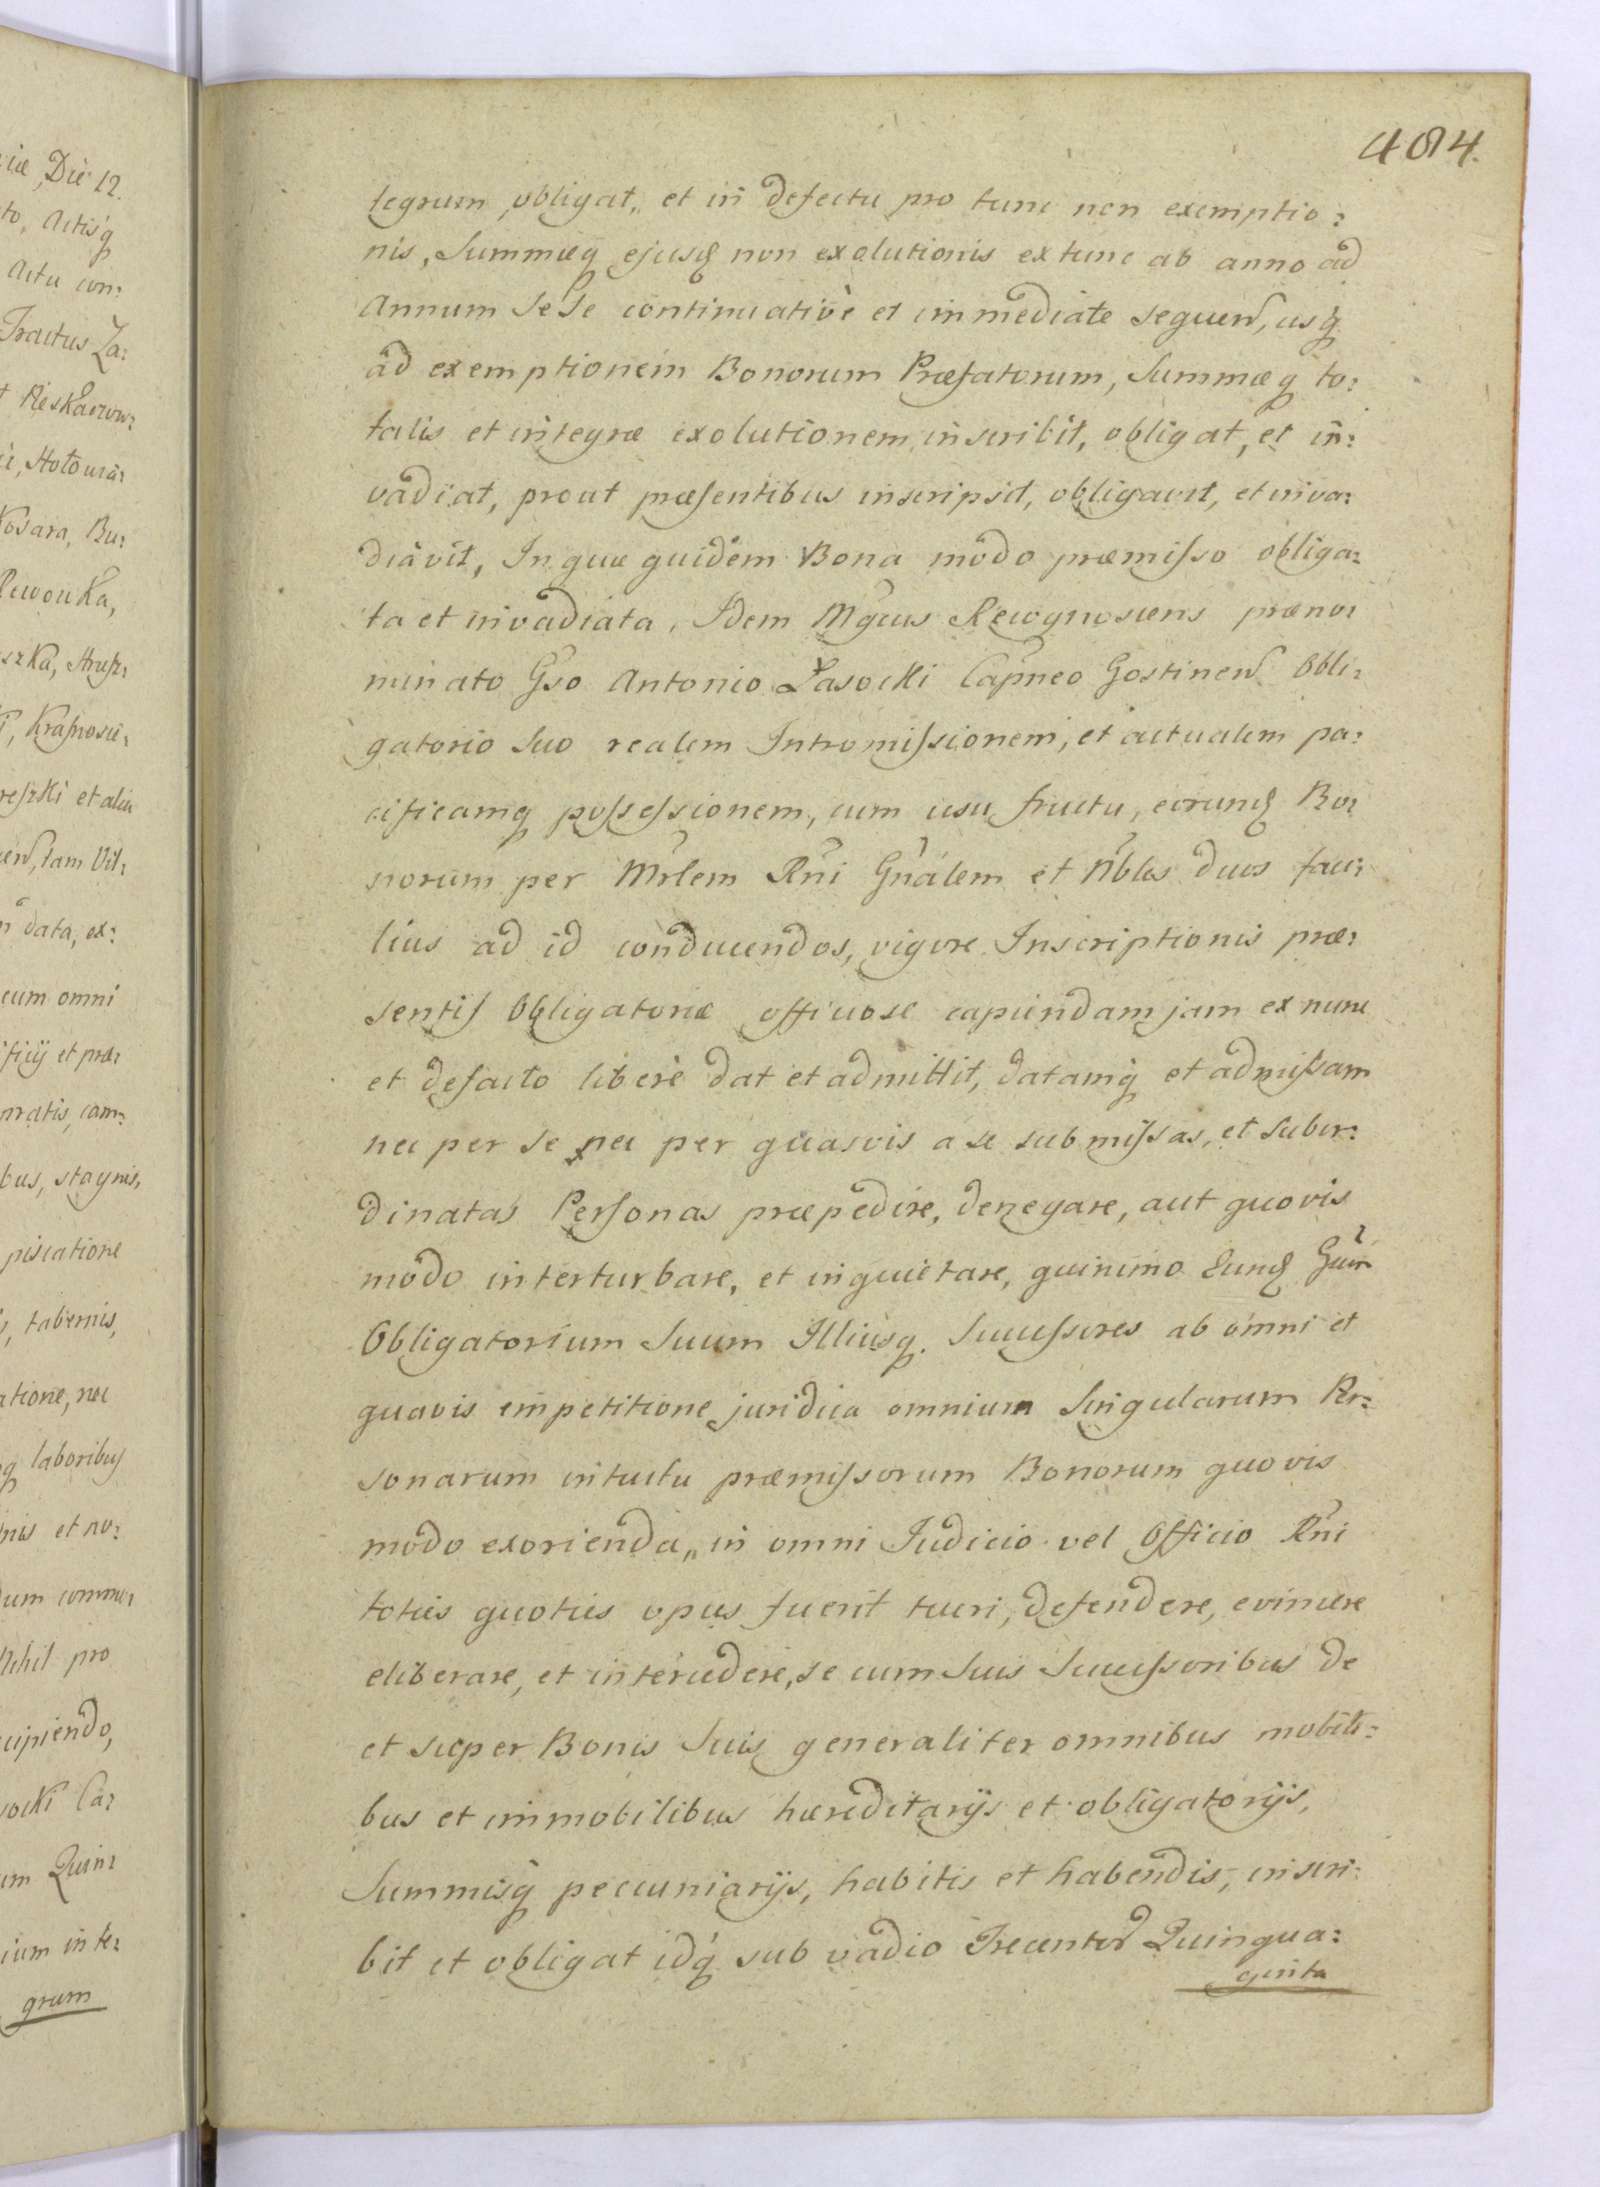 484.
tegrum obligat, et in defectu pro tunc non exemptio:
nis, Summæq ejusq non exolutionis ex tunc ab anno ad
Annum Se Se continuative et immediate sequen, usq
ad exemptionem Bonorum Præfatorum, Summæq to:
talis et integræ exolutionem inscribit, obligat, et in:
vadiat, prout præsentibus inscripsit, obligavit, et inva:
diavit, In quæ quidem Bona modo præmisso obliga:
ta et invadiata, Idem Mgcus Recognoscens præno:
minato Gso Antonio Łasocki Capneo Gostinen Obli:
gatorio Suo realem Intromissionem, et actualem pa:
cificamq possessionem, cum usu fructu, eorunq Bo:
norum per Mrlem Rni Gnalem et Nbles duos fau:
lius ad id conducendos, vigore Inscriptionis præ:
sentis Obligatoriæ officiose capiendam jam ex nunc
et defacto liberè dat et admittit, datamq et admissam
nec per Se nec per quasvis a se submissas, et subor:
dinatas Personas præpedire, denegare, aut quovis
modo interturbare, et inquietare, quinimo Eunq Gum
Obligatorium Suum Illiusq. Successores ab omni et
quavis impetitione juridica omnium Singularum Per:
sonarum intuitu præmissorum Bonorum quovis
modo exorienda, in omni Judicio vel Officio Rni
toties quoties opus fuerit tueri, defendere, evincere
eliberare, et intercedere, se cum Suis Successoribus de
et super Bonis Suis generaliter omnibus mobili:
bus et immobilibus hæreditarijs et obligatorijs,
Summisq pecuniarijs, habitis et habendis, inscri:
bit et obligat idq sub vadio Trecentor Quinqua:
ginta
iæ, Die 12.
to, Actisq
Actu con:
Tractus Za:
Kosara, Bu:
data, ex:
cum omni
ficij et præ:
pratis, cam:
bus, stagnis,
piscatione
tabernis,
atione, nec
laboribus
nis et no:
Nihil pro
cipiendo,
socki Ca:
um Quin:
ium inte:
grum